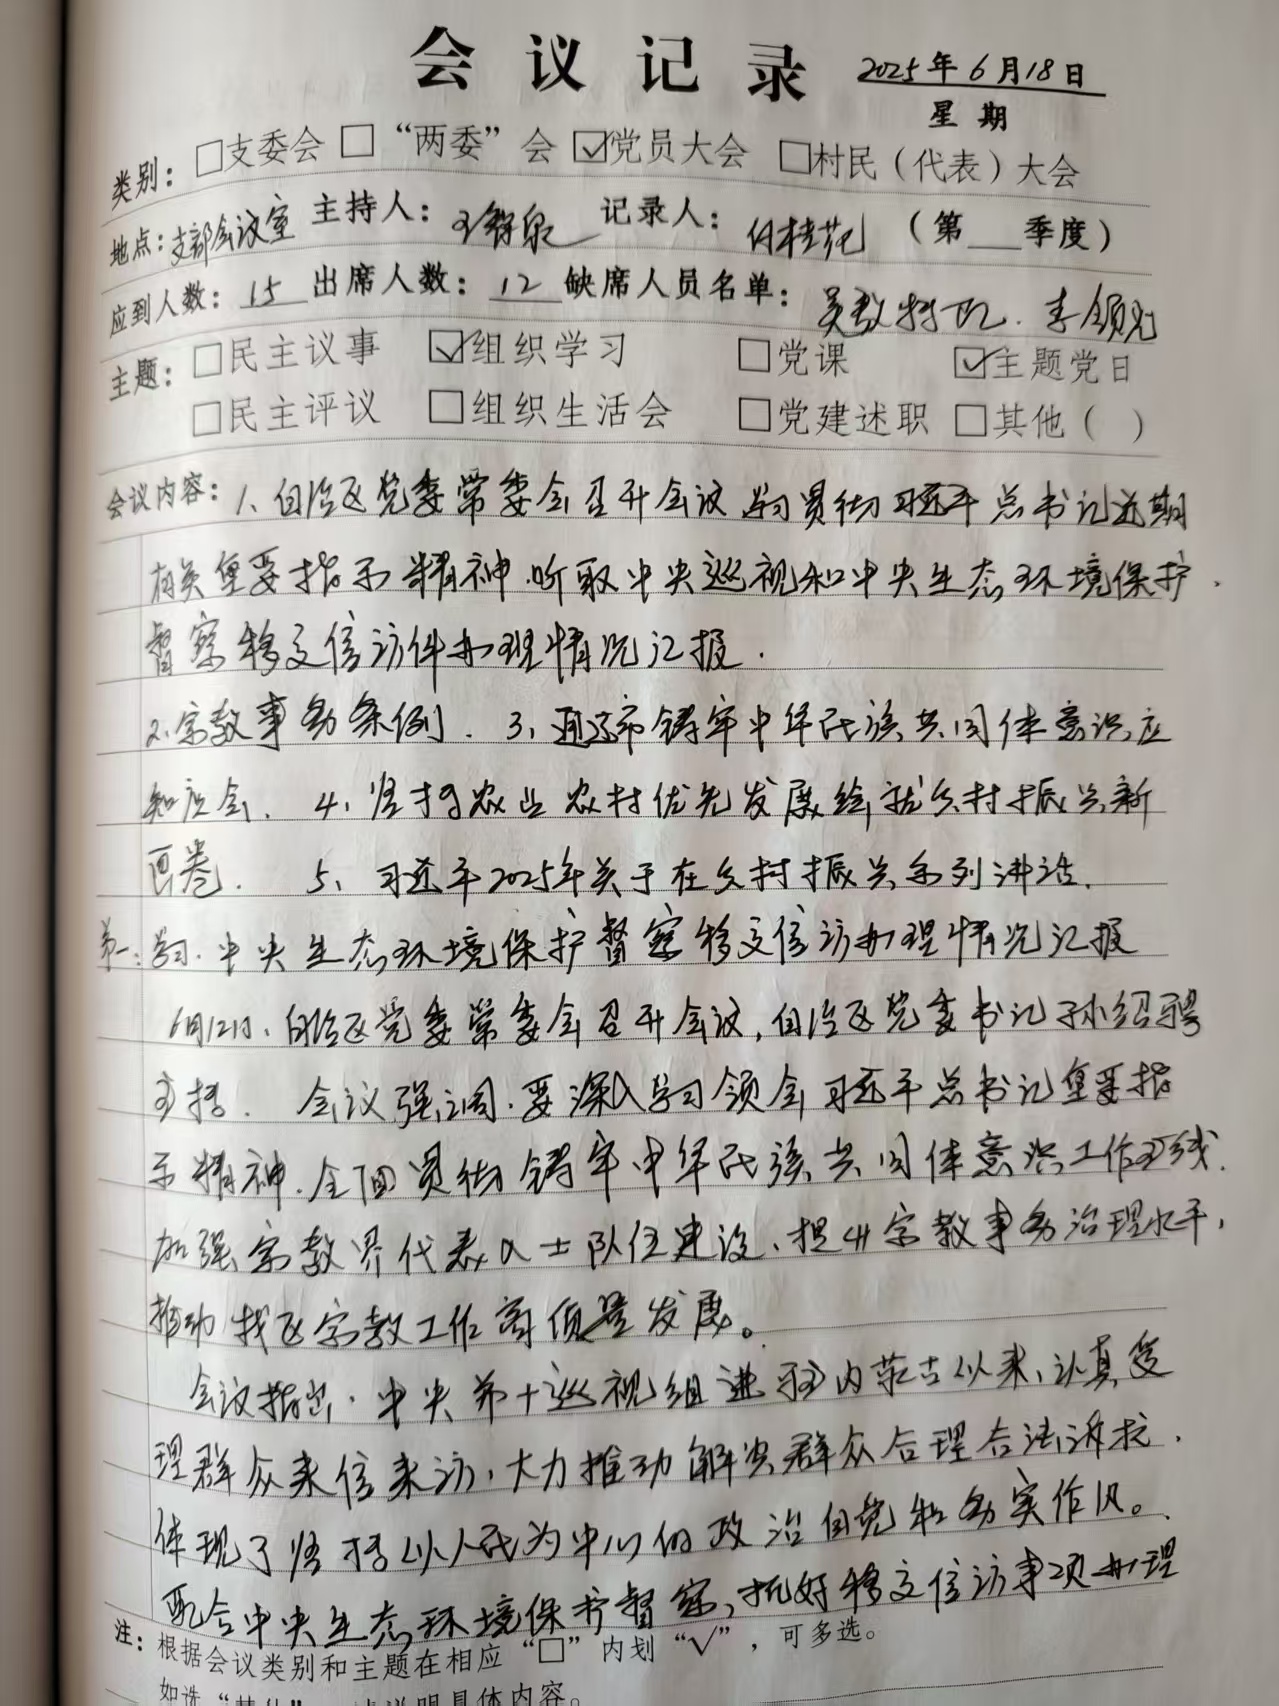 会议记录 2025年6月18日
星期
类别：□支委会 □“两委”会 ☑党员大会 □村民（代表）大会
地点：支部会议室 主持人： 记录人：白桂花 （第___季度）
应到人数：15 出席人数：12 缺席人员名单：
主题：□民主议事 ☑组织学习 □党课 ☑主题党日
□民主评议 □组织生活会 □党建述职 □其他（ ）
会议内容：1、自治区党委常委会召开会议 学习贯彻习近平总书记近期
有关重要指示精神.听取中央巡视和中央生态环境保护.
督察移交信访件办理情况汇报.
2.宗教事务条例. 3、通辽市铸牢中华民族共同体意识应
知应会. 4、坚持农业农村优先发展绘就乡村振兴新
画卷. 5、习近平2025年关于在乡村振兴系列讲话.
第一：学习.中央生态环境保护督察移交信访办理情况汇报
6月12日、自治区党委常委会召开会议，自治区党委书记孙绍骋
主持. 会议强调.要深入学习领会习近平总书记重要指
示精神.全面贯彻铸牢中华民族共同体意识工作主线.
加强宗教界代表人士队伍建设、提升宗教事务治理水平，
推动我区宗教工作高质量发展。
会议指出.中央第十巡视组进驻内蒙古以来、认真受
理群众来信来访、大力推动解决群众合理合法诉求.
体现了坚持以人民为中心的政治自觉和务实作风。
配合中央生态环境保护督察，抓好移交信访事项办理
注：根据会议类别和主题在相应“□”内划“√”，可多选。